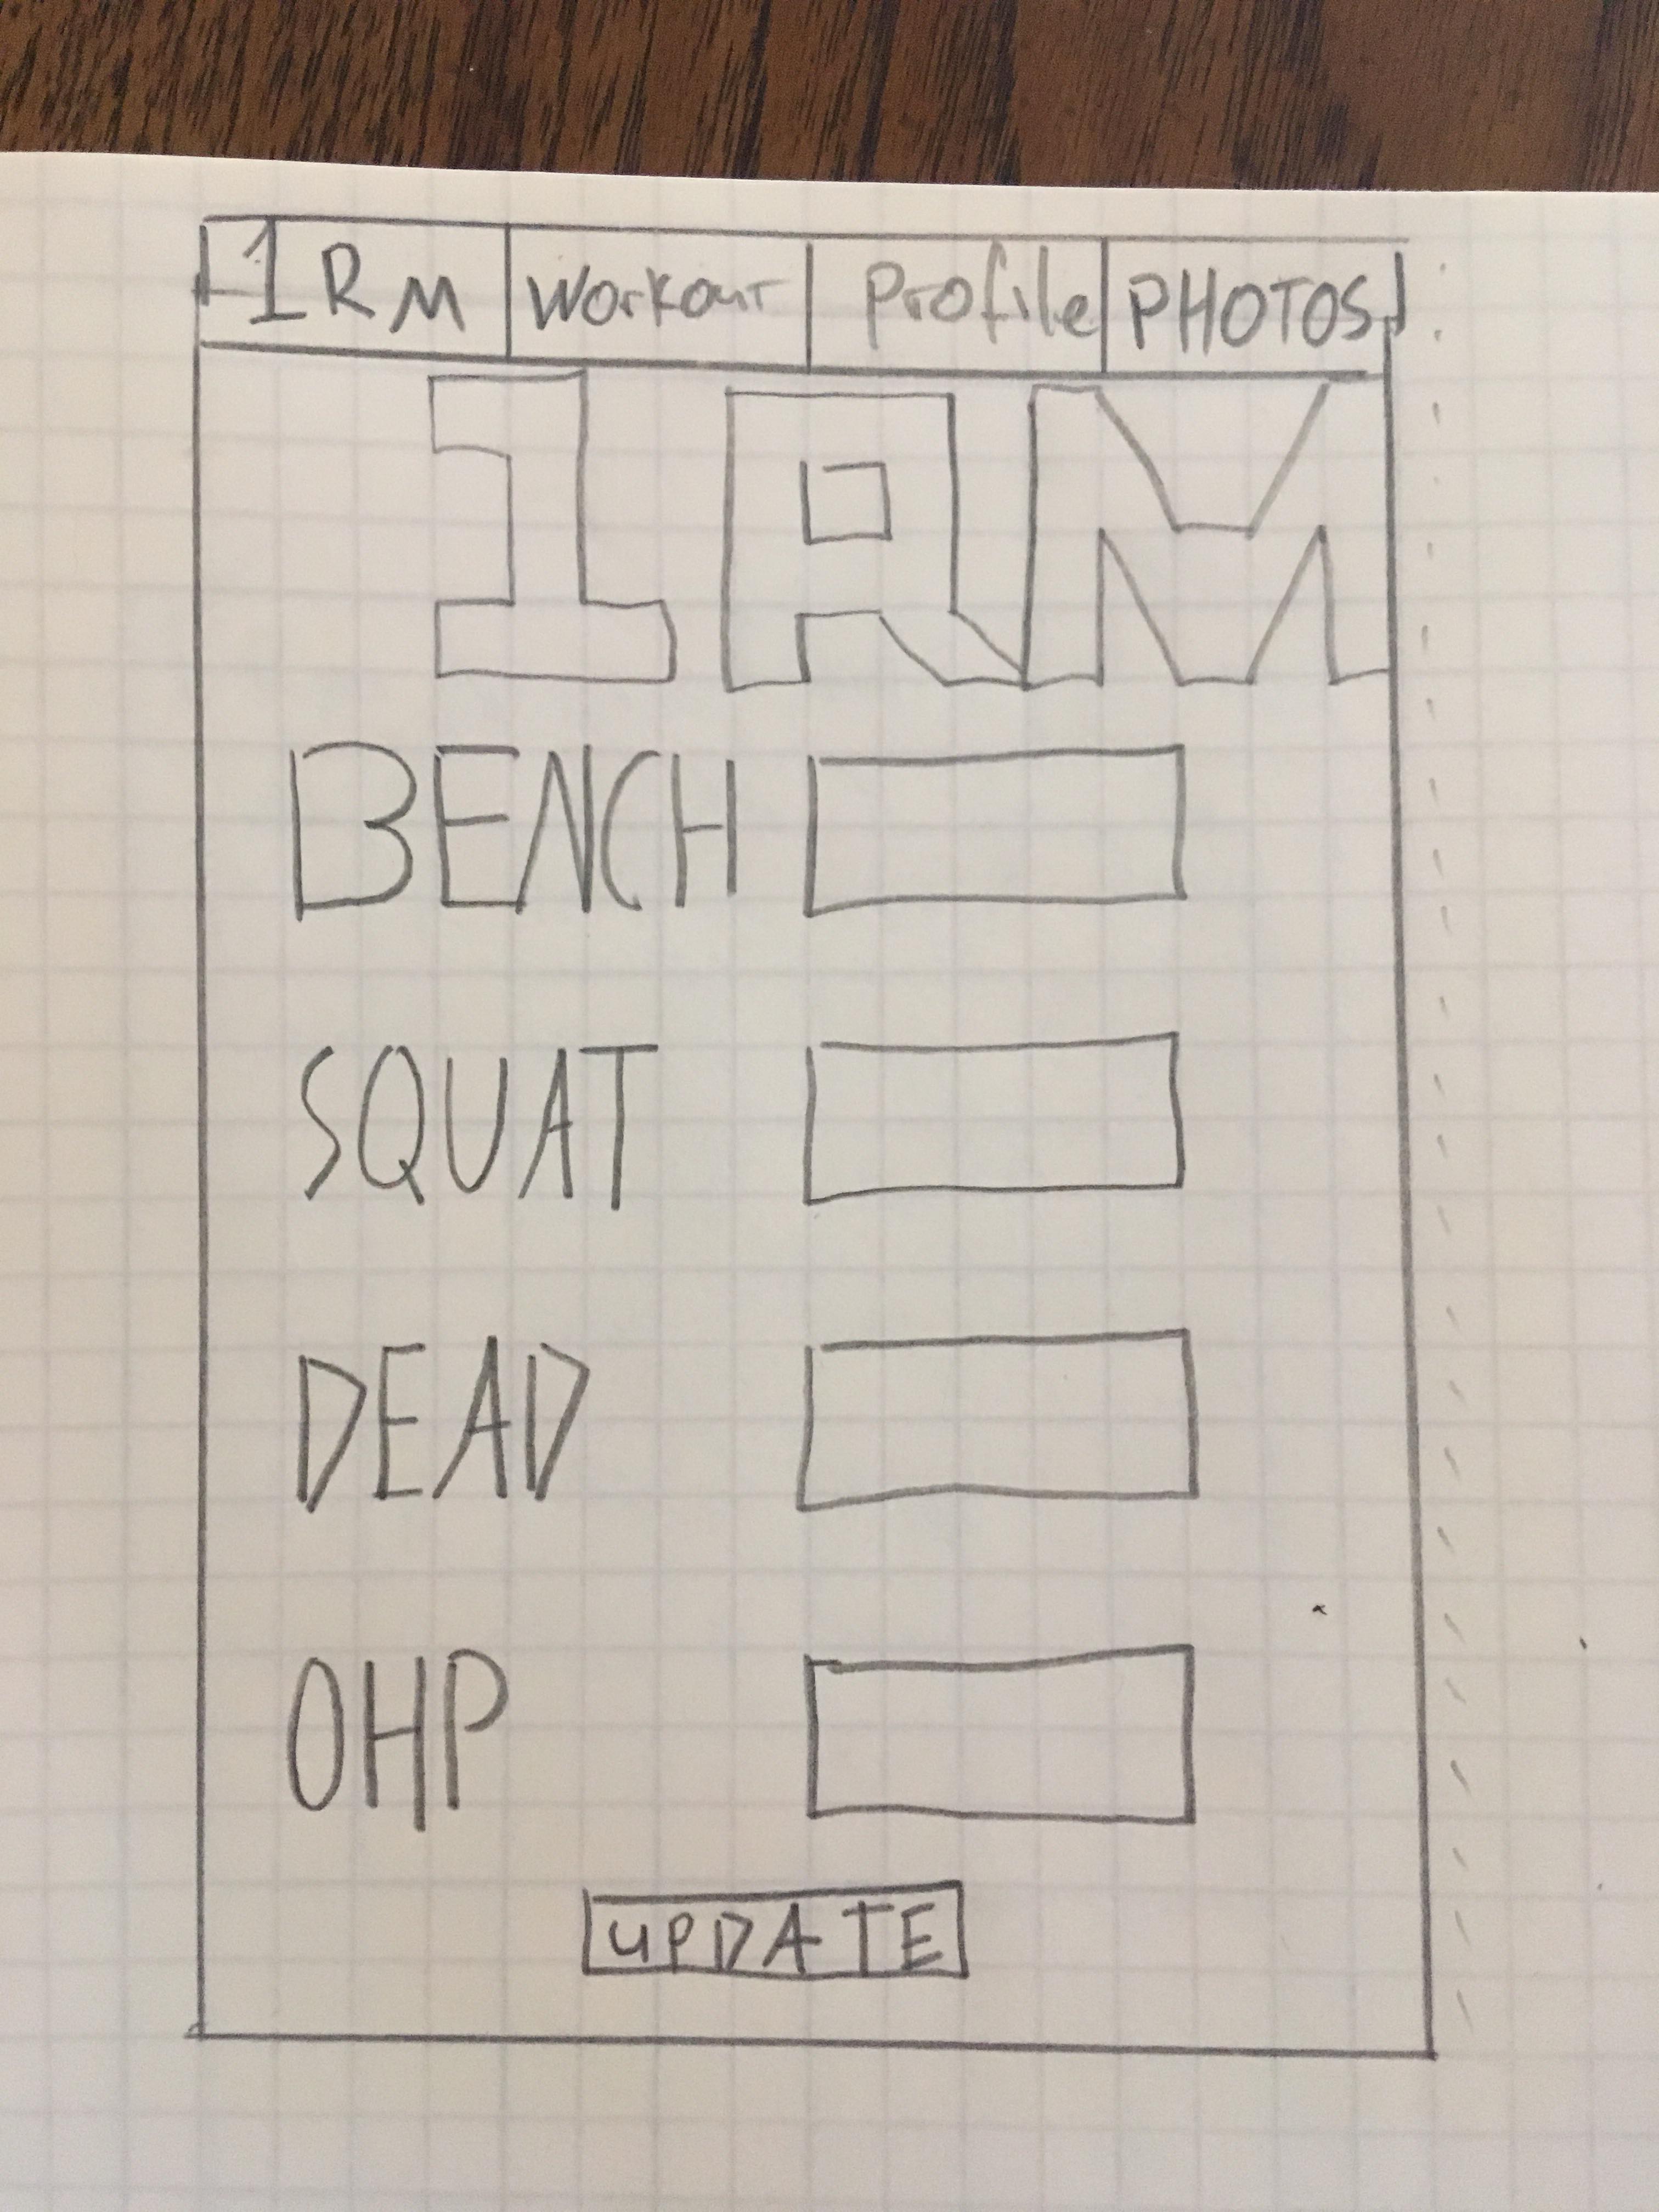 1RM Workout Profile PHOTOS
1RM
BENCH
SQUAT
DEAD
OHP
UPDATE